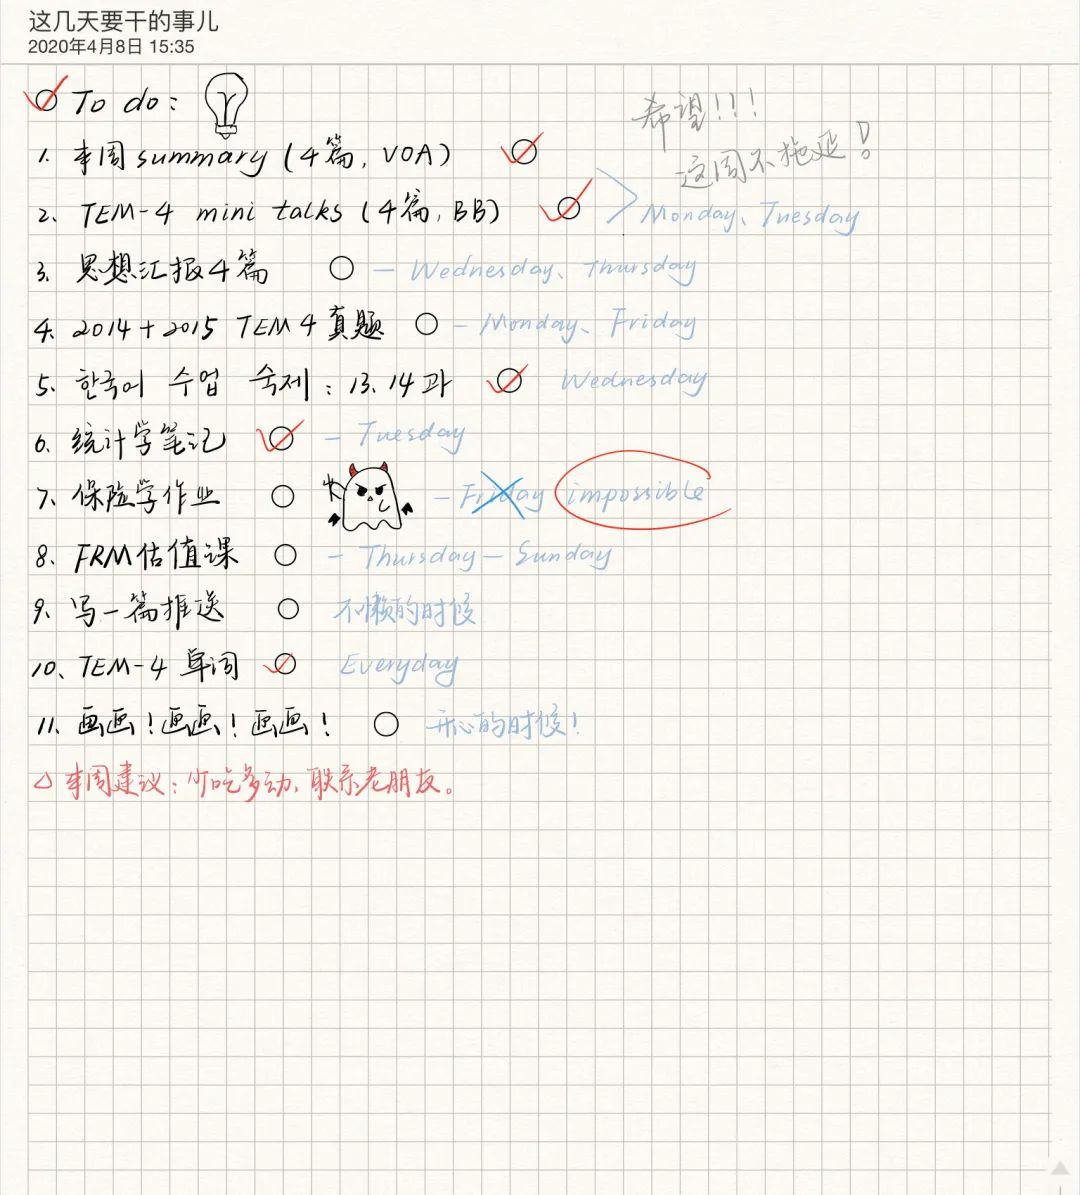 这几天要干的事儿
2020年4月8日 15:35
To do:
希望!!!
这周不拖延!
1. 本周summary (4篇, VOA)
2、TEM-4 mini talks (4篇, BB)
Monday、Tuesday
3. 思想汇报4篇 — Wednesday、Thursday
4. 2014+2015 TEM4真题 — Monday、Friday
5. 한국어 수업 숙제: 13. 14과 Wednesday
6. 统计学笔记 — Tuesday
7. 保险学作业 — Friday impossible
8、FRM估值课 — Thursday — Sunday
9、写一篇推送 不懒的时候
10、TEM-4 单词 Everyday
11. 画画!画画!画画! 开心的时候!
△ 本周建议: 少吃多动, 联系老朋友。